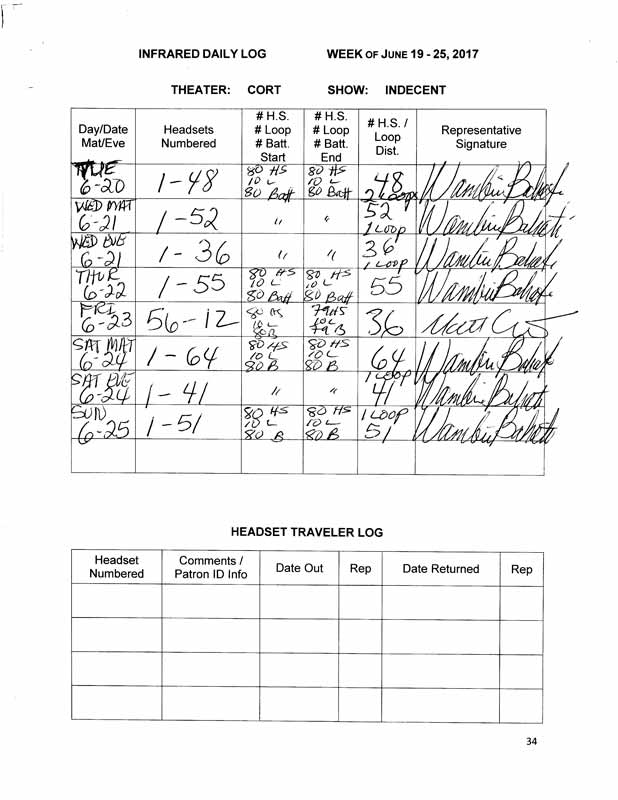 INFRARED DAILY LOG WEEK OF JUNE 19 - 25, 2017
THEATER: CORT SHOW: INDECENT
Day/Date Mat/Eve Headsets Numbered # H.S. # Loop # Batt. Start # H.S. # Loop # Batt. End # H.S. / Loop Dist. Representative Signature
TUE 6-20 1-48 80 HS 10 L 80 Batt 80 HS 10 L 80 Batt 48 2 Loops
WED MAT 6-21 1-52 " " 52 1 LOOP
WED EVE 6-21 1-36 " " 36 1 LOOP
THUR 6-22 1-55 80 HS 10 L 80 Batt 80 HS 10 L 80 Batt 55
FRI 6-23 56-12 80 HS 10 L 80B 79HS 10L 79 B 36 Matt
SAT MAT 6-24 1-64 80 HS 10 L 80 B 80 HS 10 L 80 B 64 1 LOOP
SAT EVE 6-24 1-41 " " 41
SUN 6-25 1-51 80 HS 10 L 80 B 80 HS 10 L 80 B 1 LOOP 51
HEADSET TRAVELER LOG
Headset Numbered Comments / Patron ID Info Date Out Rep Date Returned Rep
34